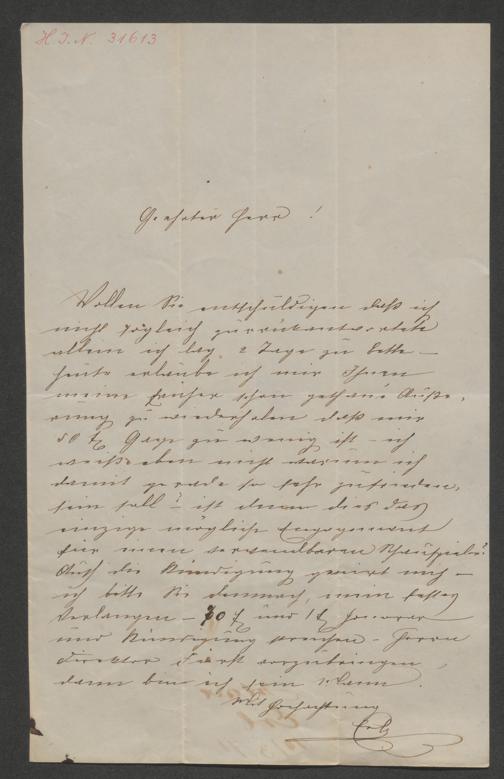 H. I. N. 31613
Geehrter Herr!
Wollen Sie entschuldigen daß ich
nicht sogleich zurückantwortete
allein ich lag 2 Tage zu Bette –
heute erlaube ich mir Ihnen
meine früher schon gethane Äuße-
rung zu wiederholen daß mir
50 f Gage zu wenig ist – ich
weiß eben nicht warum ich
damit gerade so sehr zufrieden
sein soll? – ist denn dies das
einzige mögliche Engagement
für einen verwendbaren Schauspieler?
Auch die Kündigung genirt mich –
ich bitte Sie demnach, mein festes
Verlangen – 70 f und 1 f Honorar
und Kündigung streichen – Herrn
Direktor Fürst vorzubringen,
dann bin ich sein Mann.
Mit Hochachtung